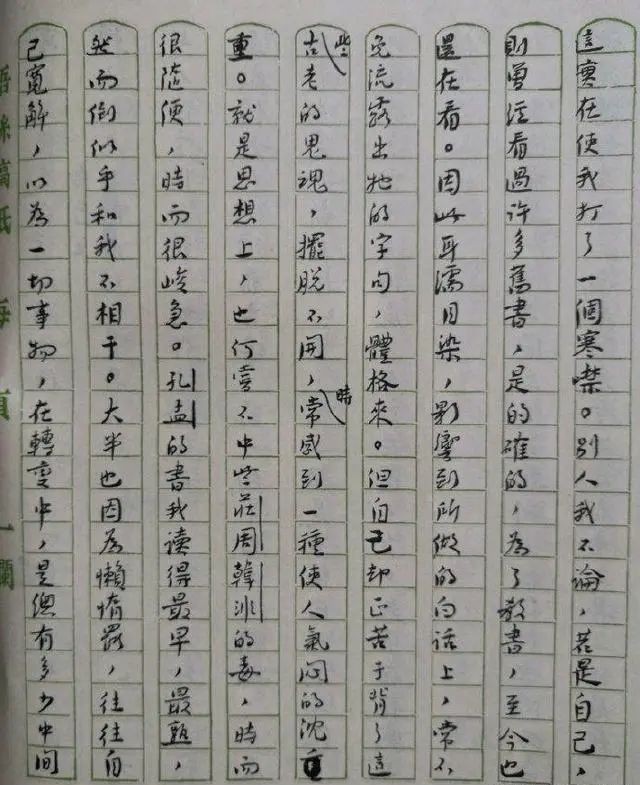 這實在使我打了一個寒噤。別人我不論,若是自己,
則曾經看過許多舊書,是的確的,為了教書,至今也
還在看。因此耳濡目染,影響到所做的白話上,常不
免流露出牠的字句,體格來。但自己却正苦于背了這
些古老的鬼魂,擺脫不開,時常感到一種使人氣悶的沈
重。就是思想上,也何嘗不中些莊周韓非的毒,時而
很隨便,時而很峻急。孔孟的書我讀得最早,最熟,
然而倒似乎和我不相干。大半也因為懶惰罷,往往自
己寬解,以為一切事物,在轉變中,是總有多少中間
語絲稿紙 每頁一欄